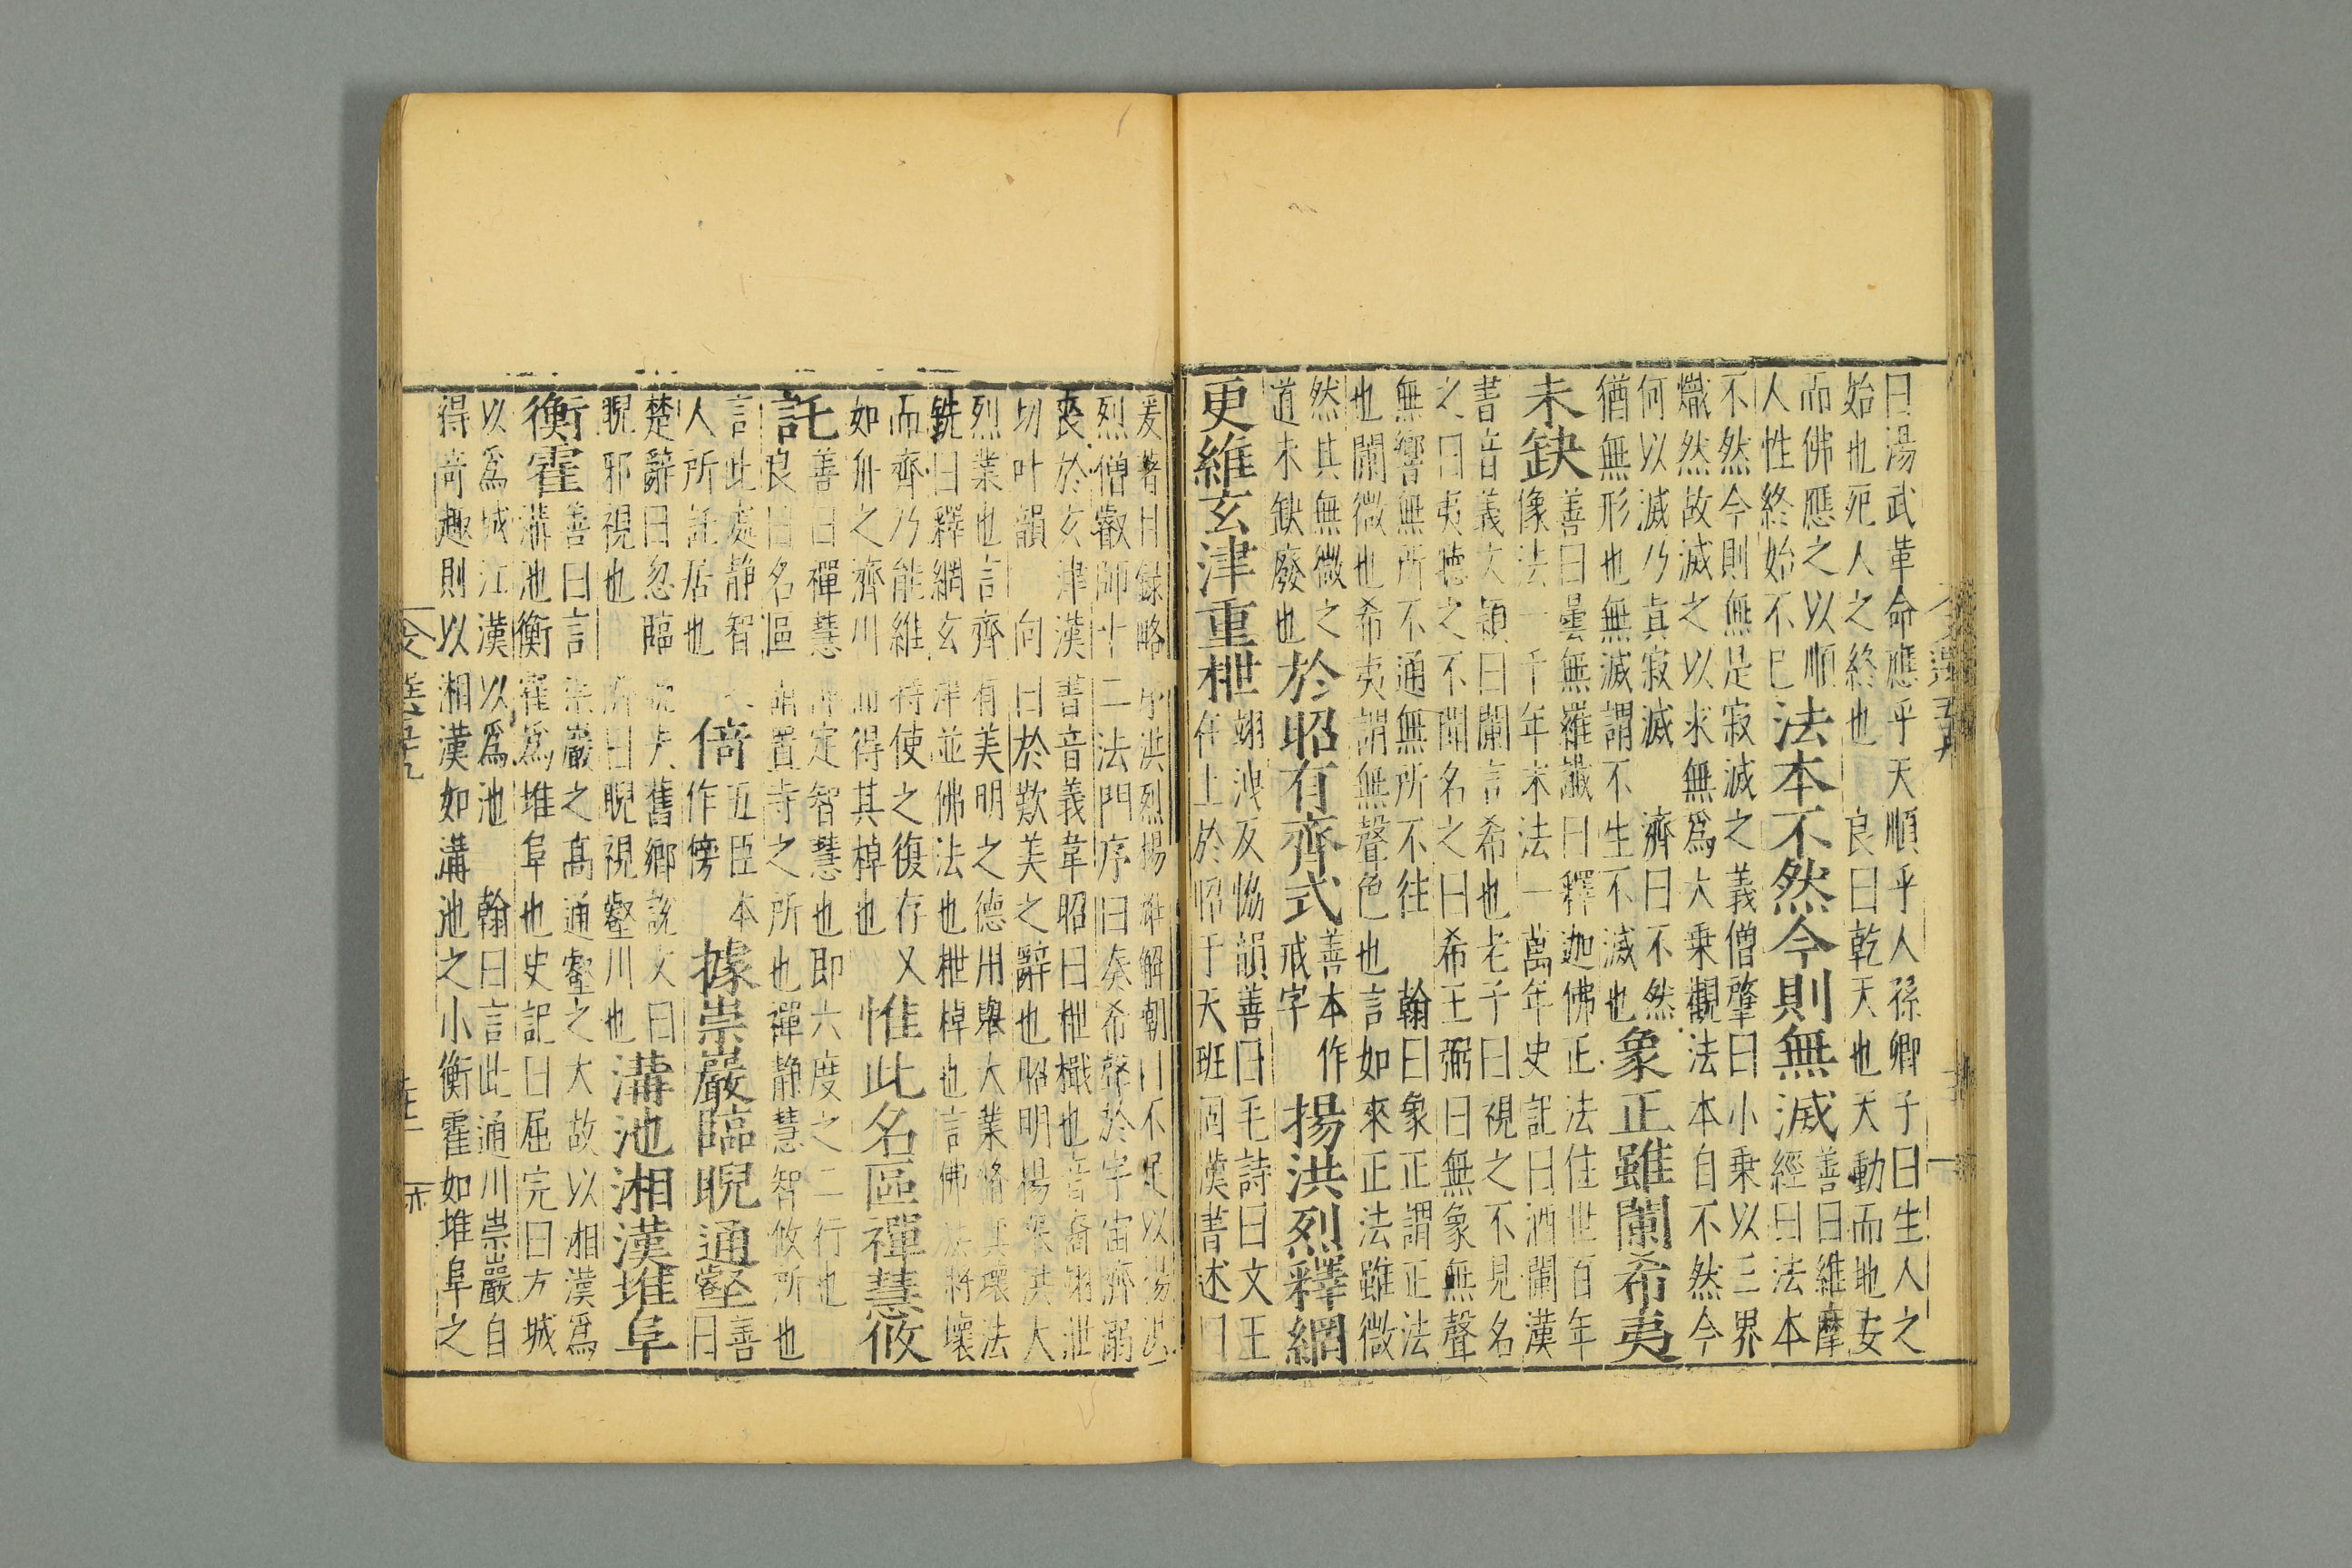 曰湯武革命應乎天順乎人孫卿子曰生人之
始也死人之終也　良曰乾天也天動而地安
而佛應之以順
人性終始不已
法本不然今則無滅
善曰維摩
經曰法本
不然今則無是寂滅之義僧肇曰小乗以三界
熾然故滅之以求無爲大乗觀法本自不然今
何以滅乃真寂滅　濟曰不然
猶無形也無滅謂不生不滅也
象正雖闌希夷
未缺
善曰曇無羅讖曰釋迦佛正法住世百年
像法一千年末法一萬年史記曰酒闌漢
書音義文穎曰闌言希也老子曰視之不見名
之曰夷聽之不聞名之曰希王弼曰無象無聲
無響無所不通無所不往　翰曰象正謂正法
也闌微也希夷謂無聲色也言如來正法雖微
然其無微之
道未缺廢也
於昭有齊式
善本作
戒字
揚洪烈釋網
更維玄津重枻
翊洩反恊韻善曰毛詩曰文王
在上於昭于天班固漢書述曰
爰著目録略序洪烈揚雄解嘲曰不足以揚洪
烈僧叡師十二法門序曰奏希聲於宇宙濟溺
喪於玄津漢書音義韋昭曰枻檝也音裔翊泄
切叶韻　向曰於歎美之辭也昭明揚舉洪大
烈業也言齊有美明之德用舉大業脩其壞法
銑曰釋網玄津並佛法也枻棹也言佛法將壞
而齊乃能維持使之復存又
如舟之濟川而得其棹也
惟此名區禪慧攸
託
善曰禪慧禪定智慧也即六度之二行也
良曰名區謂置寺之所也禪静慧智攸所也
言此處静智
人所託居也
倚
五臣本
作傍
據崇巖臨睨通壑
善
曰
楚辭曰忽臨睨夫舊鄉説文曰
睨邪視也　濟曰睨視壑川也
溝池湘漢堆阜
衡霍
善曰言崇巖之髙通壑之大故以湘漢爲
溝池衡霍爲堆阜也史記曰屈完曰方城
以爲城江漢以爲池　翰曰言此通川崇巖自
得奇趣則以湘漢如溝池之小衡霍如堆阜之